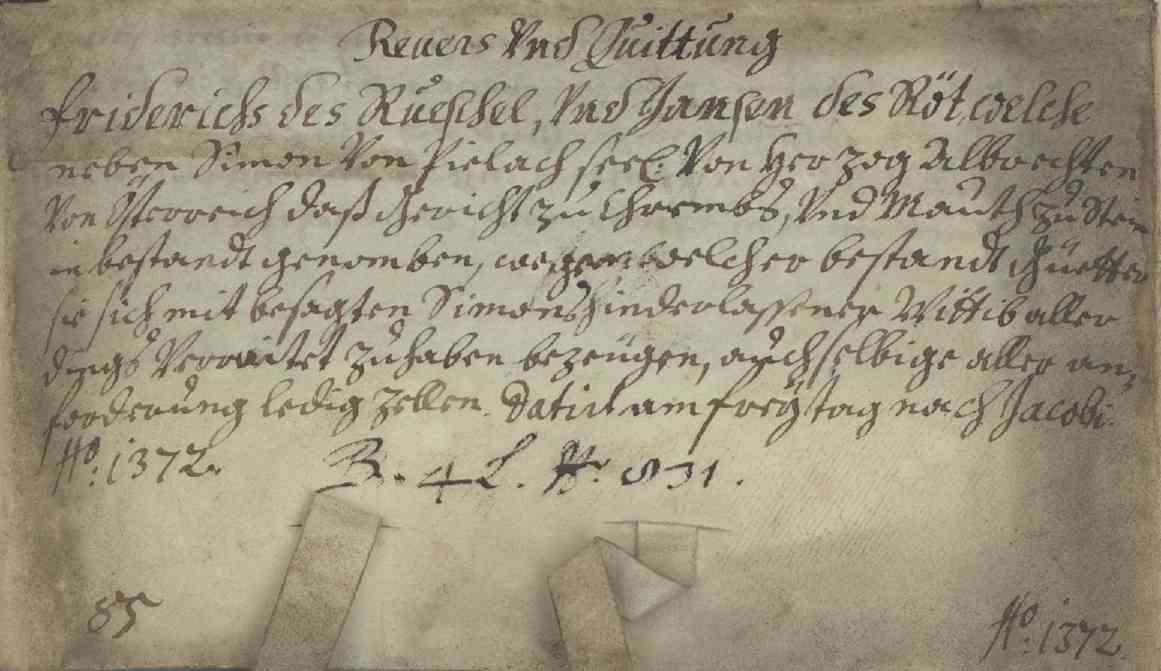 Reuers Vnd Quittung
Friderichs des Rueschel, Vnd Jansen des Röt, welche
neben Simon Von Pielach seel: Von Herzog Albrechten
Von Österreich daß Gericht zu Chrembs, Vnd Mauth zu Stein
in bestandt genomben, wegen welcher bestandt Güetter
sie sich mit besagten Simons hinderlassener Wittib aller
dings Verraitet zuhaben bezeugen, auch selbige aller an,
forderung ledig zellen. Datum am freytag nach Jacobi.
Ao: 1372. B. 4 L. N. 831.
85
Ao: 1372